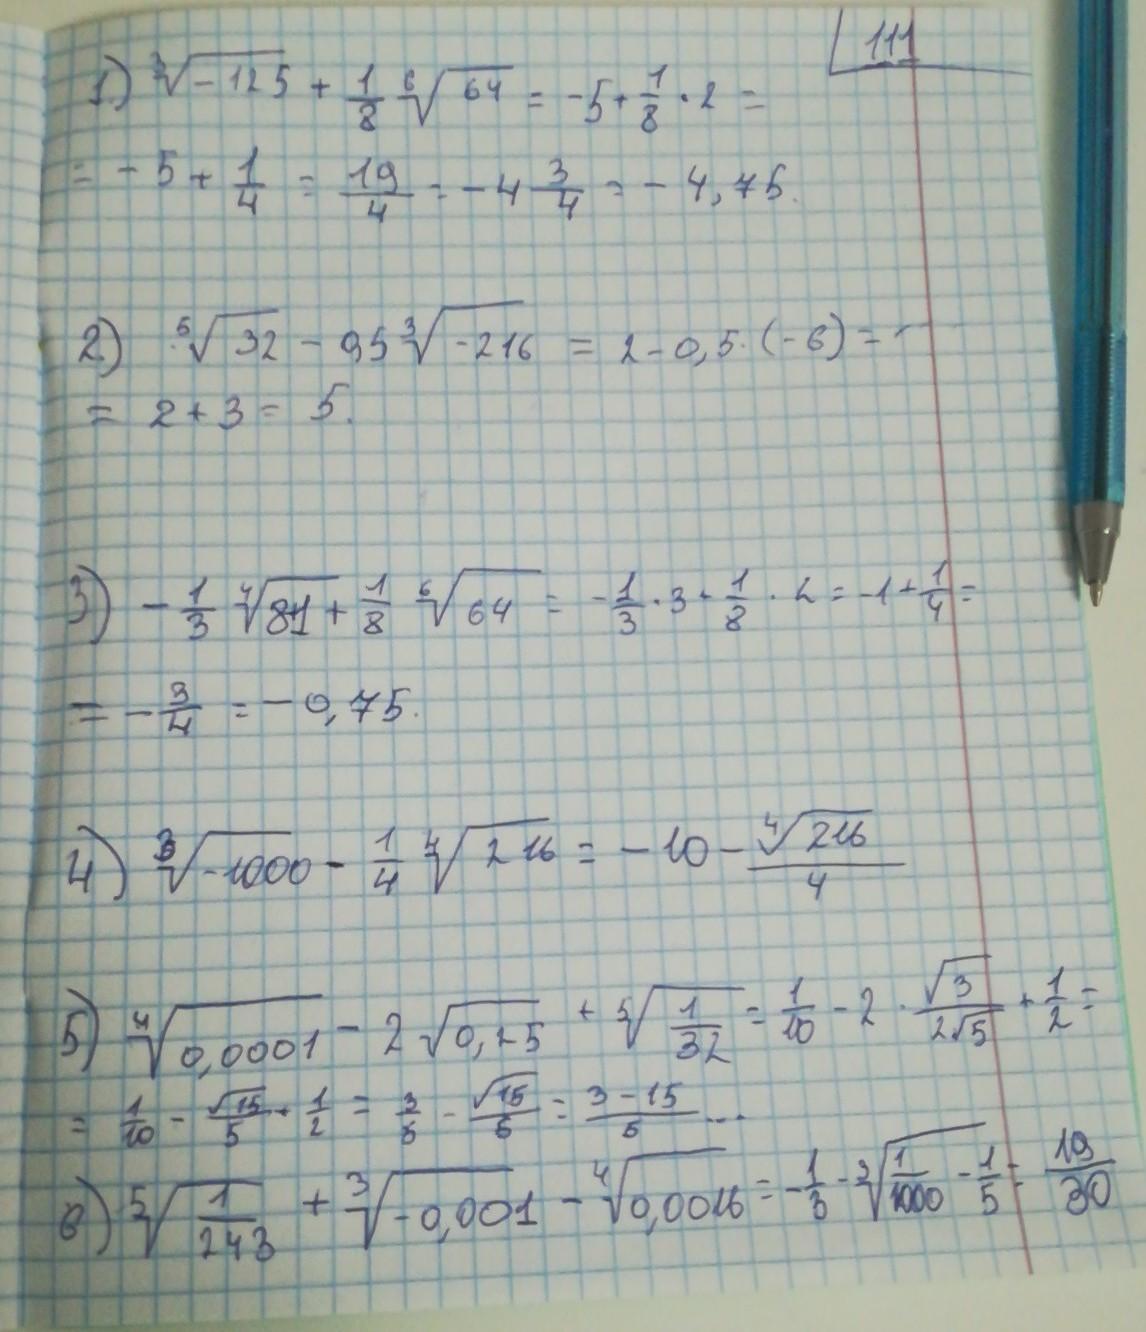 111
1) ∛(-125) + 1/8 ⁶√64 = -5 + 1/8 · 2 =
= -5 + 1/4 = 19/4 = -4 3/4 = -4,75.
2) ⁵√32 - 0,5 ∛(-216) = 2 - 0,5 · (-6) =
= 2 + 3 = 5.
3) -1/3 ⁴√81 + 1/8 ⁶√64 = -1/3 · 3 + 1/8 · 2 = -1 + 1/4 =
= -3/4 = -0,75.
4) ∛(-1000) - 1/4 ⁴√216 = -10 - ⁴√216/4
5) ⁴√0,0001 - 2√0,15 + ⁵√(1/32) = 1/10 - 2 · √3/(2√5) + 1/2 =
= 1/10 - √15/5 + 1/2 = 3/5 - √15/5 = (3 - 15)/5 ...
6) ⁵√(1/243) + ∛(-0,001) - ⁴√0,0016 = -1/3 - ∛(1/1000) - 1/5 = 19/30